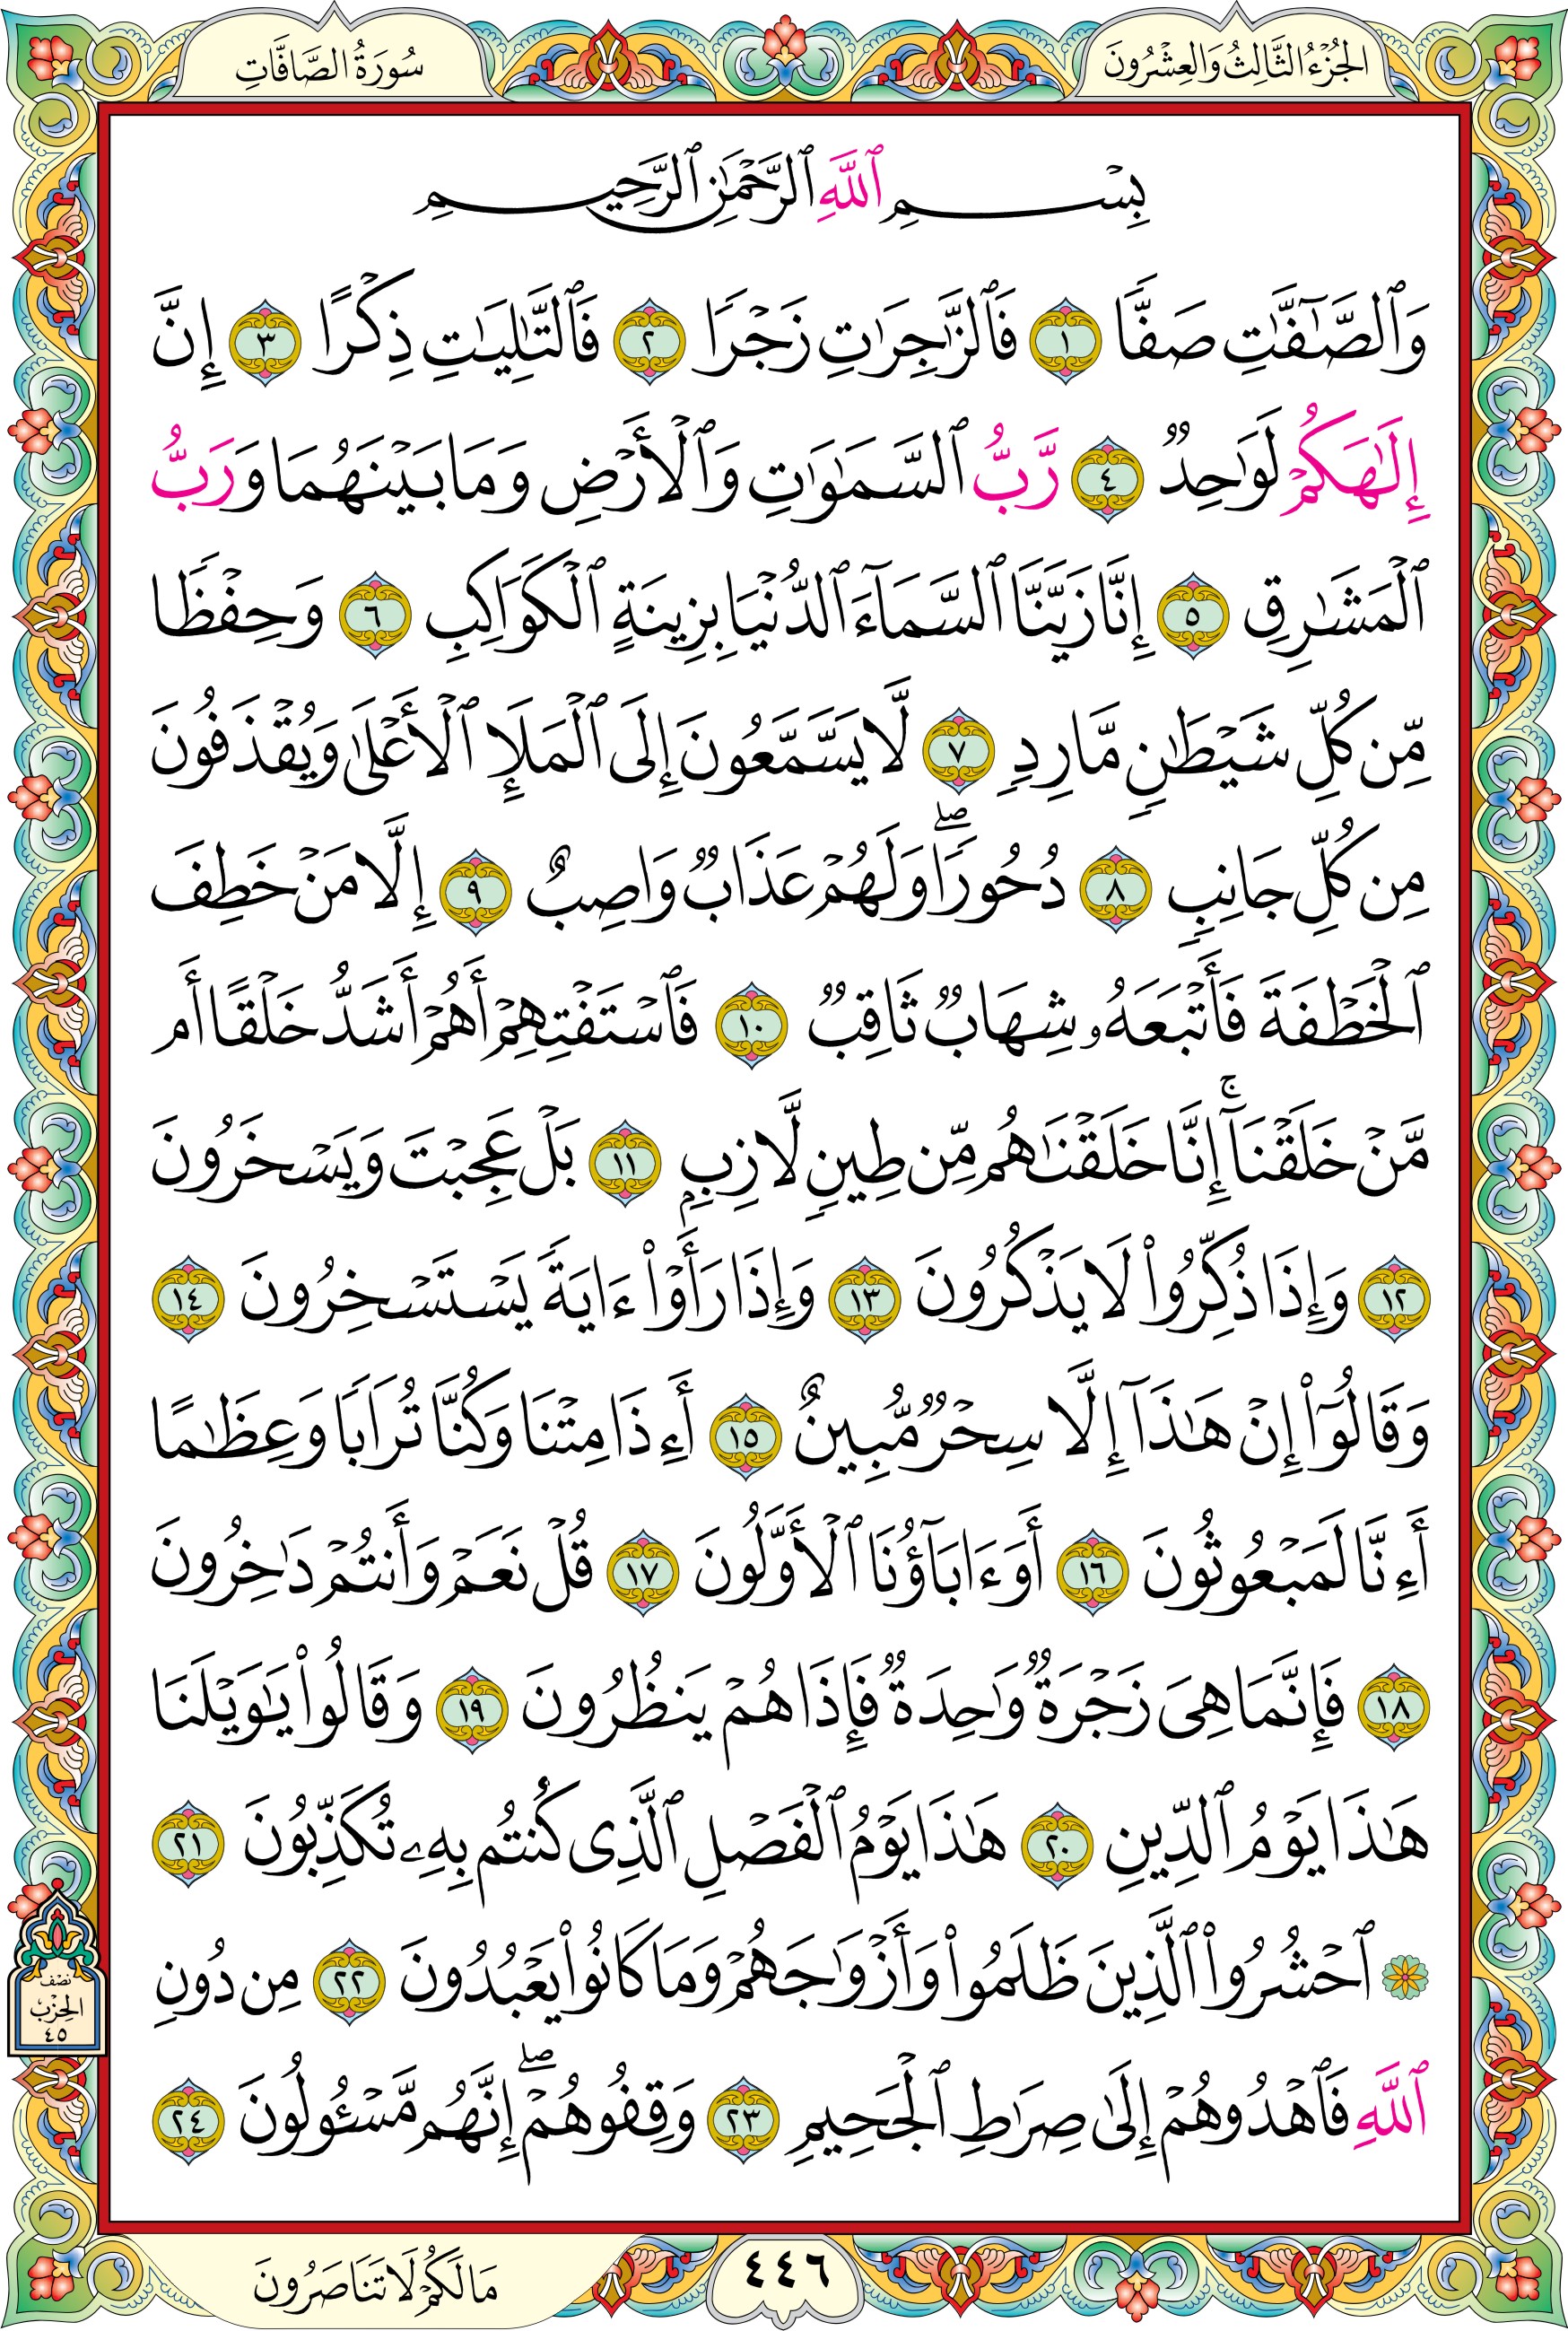 الجُزْءُ الثَّالِثُ وَالعِشْرُونَ
سُورَةُ الصَّافَّاتِ
بِسْمِ ٱللَّهِ ٱلرَّحْمَٰنِ ٱلرَّحِيمِ
وَٱلصَّٰٓفَّٰتِ صَفّٗا ١ فَٱلزَّٰجِرَٰتِ زَجۡرٗا ٢ فَٱلتَّٰلِيَٰتِ ذِكۡرًا ٣ إِنَّ
إِلَٰهَكُمۡ لَوَٰحِدٞ ٤ رَّبُّ ٱلسَّمَٰوَٰتِ وَٱلۡأَرۡضِ وَمَا بَيۡنَهُمَا وَرَبُّ
ٱلۡمَشَٰرِقِ ٥ إِنَّا زَيَّنَّا ٱلسَّمَآءَ ٱلدُّنۡيَا بِزِينَةٍ ٱلۡكَوَاكِبِ ٦ وَحِفۡظٗا
مِّن كُلِّ شَيۡطَٰنٖ مَّارِدٖ ٧ لَّا يَسَّمَّعُونَ إِلَى ٱلۡمَلَإِ ٱلۡأَعۡلَىٰ وَيُقۡذَفُونَ
مِن كُلِّ جَانِبٖ ٨ دُحُورٗاۖ وَلَهُمۡ عَذَابٞ وَاصِبٌ ٩ إِلَّا مَنۡ خَطِفَ
ٱلۡخَطۡفَةَ فَأَتۡبَعَهُۥ شِهَابٞ ثَاقِبٞ ١٠ فَٱسۡتَفۡتِهِمۡ أَهُمۡ أَشَدُّ خَلۡقًا أَم
مَّنۡ خَلَقۡنَآۚ إِنَّا خَلَقۡنَٰهُم مِّن طِينٖ لَّازِبِۭ ١١ بَلۡ عَجِبۡتَ وَيَسۡخَرُونَ
١٢ وَإِذَا ذُكِّرُواْ لَا يَذۡكُرُونَ ١٣ وَإِذَا رَأَوۡاْ ءَايَةٗ يَسۡتَسۡخِرُونَ ١٤
وَقَالُوٓاْ إِنۡ هَٰذَآ إِلَّا سِحۡرٞ مُّبِينٌ ١٥ أَءِذَا مِتۡنَا وَكُنَّا تُرَابٗا وَعِظَٰمًا
أَءِنَّا لَمَبۡعُوثُونَ ١٦ أَوَءَابَآؤُنَا ٱلۡأَوَّلُونَ ١٧ قُلۡ نَعَمۡ وَأَنتُمۡ دَٰخِرُونَ
١٨ فَإِنَّمَا هِيَ زَجۡرَةٞ وَٰحِدَةٞ فَإِذَا هُمۡ يَنظُرُونَ ١٩ وَقَالُواْ يَٰوَيۡلَنَا
هَٰذَا يَوۡمُ ٱلدِّينِ ٢٠ هَٰذَا يَوۡمُ ٱلۡفَصۡلِ ٱلَّذِي كُنتُم بِهِۦ تُكَذِّبُونَ ٢١
۞ ٱحۡشُرُواْ ٱلَّذِينَ ظَلَمُواْ وَأَزۡوَٰجَهُمۡ وَمَا كَانُواْ يَعۡبُدُونَ ٢٢ مِن دُونِ
ٱللَّهِ فَٱهۡدُوهُمۡ إِلَىٰ صِرَٰطِ ٱلۡجَحِيمِ ٢٣ وَقِفُوهُمۡۖ إِنَّهُم مَّسۡـُٔولُونَ ٢٤
نصف
الحزب
٤٥
٤٤٦
مَا لَكُمۡ لَا تَنَاصَرُونَ